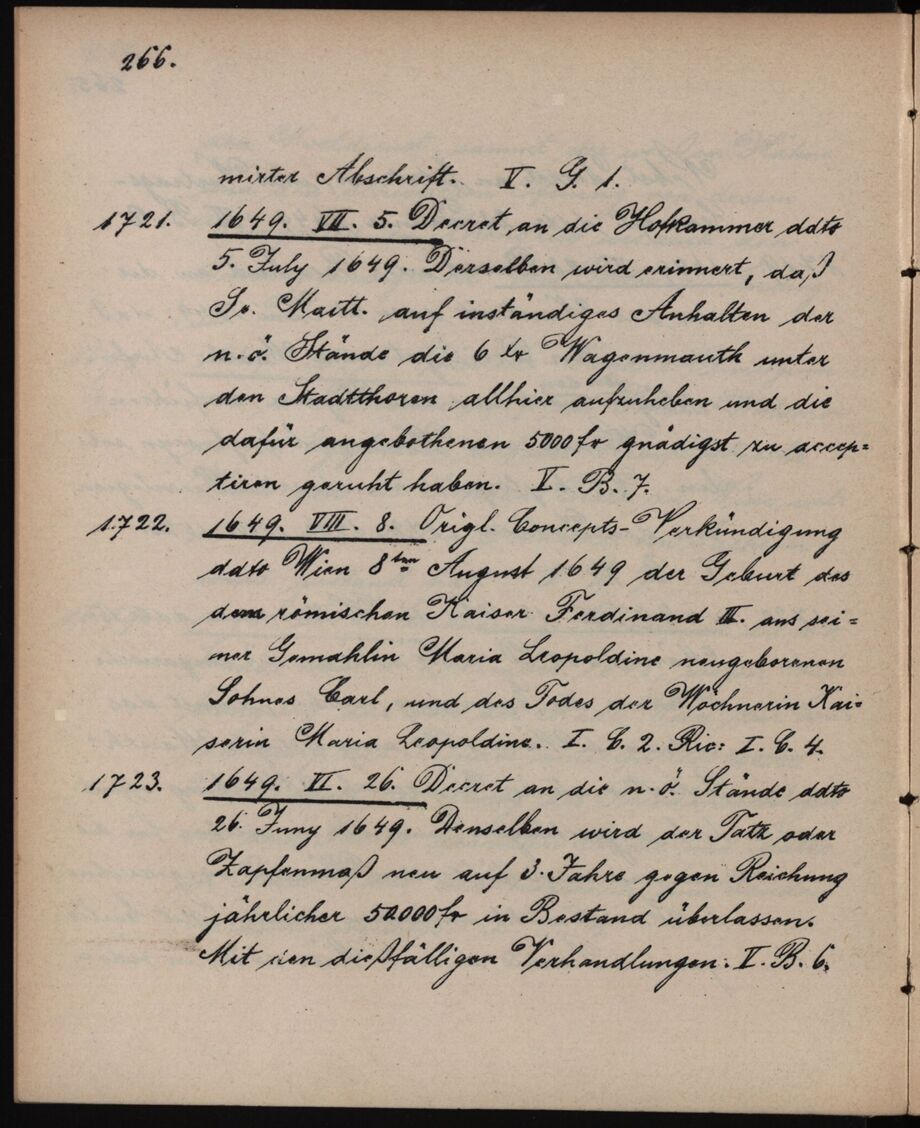 266.
mirter Abschrift. V. G. 1.
1721. 1649. VII. 5. Decret an die Hofkammer ddto
5. July 1649. Derselben wird erinnert, daß
Sr. Maitt. auf inständiges Anhalten der
n. ö. Stände die 6 xr Wagenmauth unter
den Stadtthoren allhier aufzuheben und die
dafür angebothenen 5000 fr gnädigst zu accep=
tiren geruht haben. V. B. 7.
1722. 1649. VIII. 8. Origl. Concepts-Verkündigung
ddto Wien 8ten August 1649 der Geburt des
dem römischen Kaiser Ferdinand III. aus sei=
ner Gemahlin Maria Leopoldine neugeborenen
Sohnes Carl, und des Todes der Wöchnerin Kai=
serin Maria Leopoldine. I. C. 2. Ric: I. C. 4.
1723. 1649. VI. 26. Decret an die n. ö. Stände ddto
26. Juny 1649. Denselben wird der Tatz oder
Zapfenmaß neu auf 3 Jahre gegen Reichung
jährlicher 50.000 fr in Bestand überlassen.
Mit den dießfälligen Verhandlungen. V. B. 6.